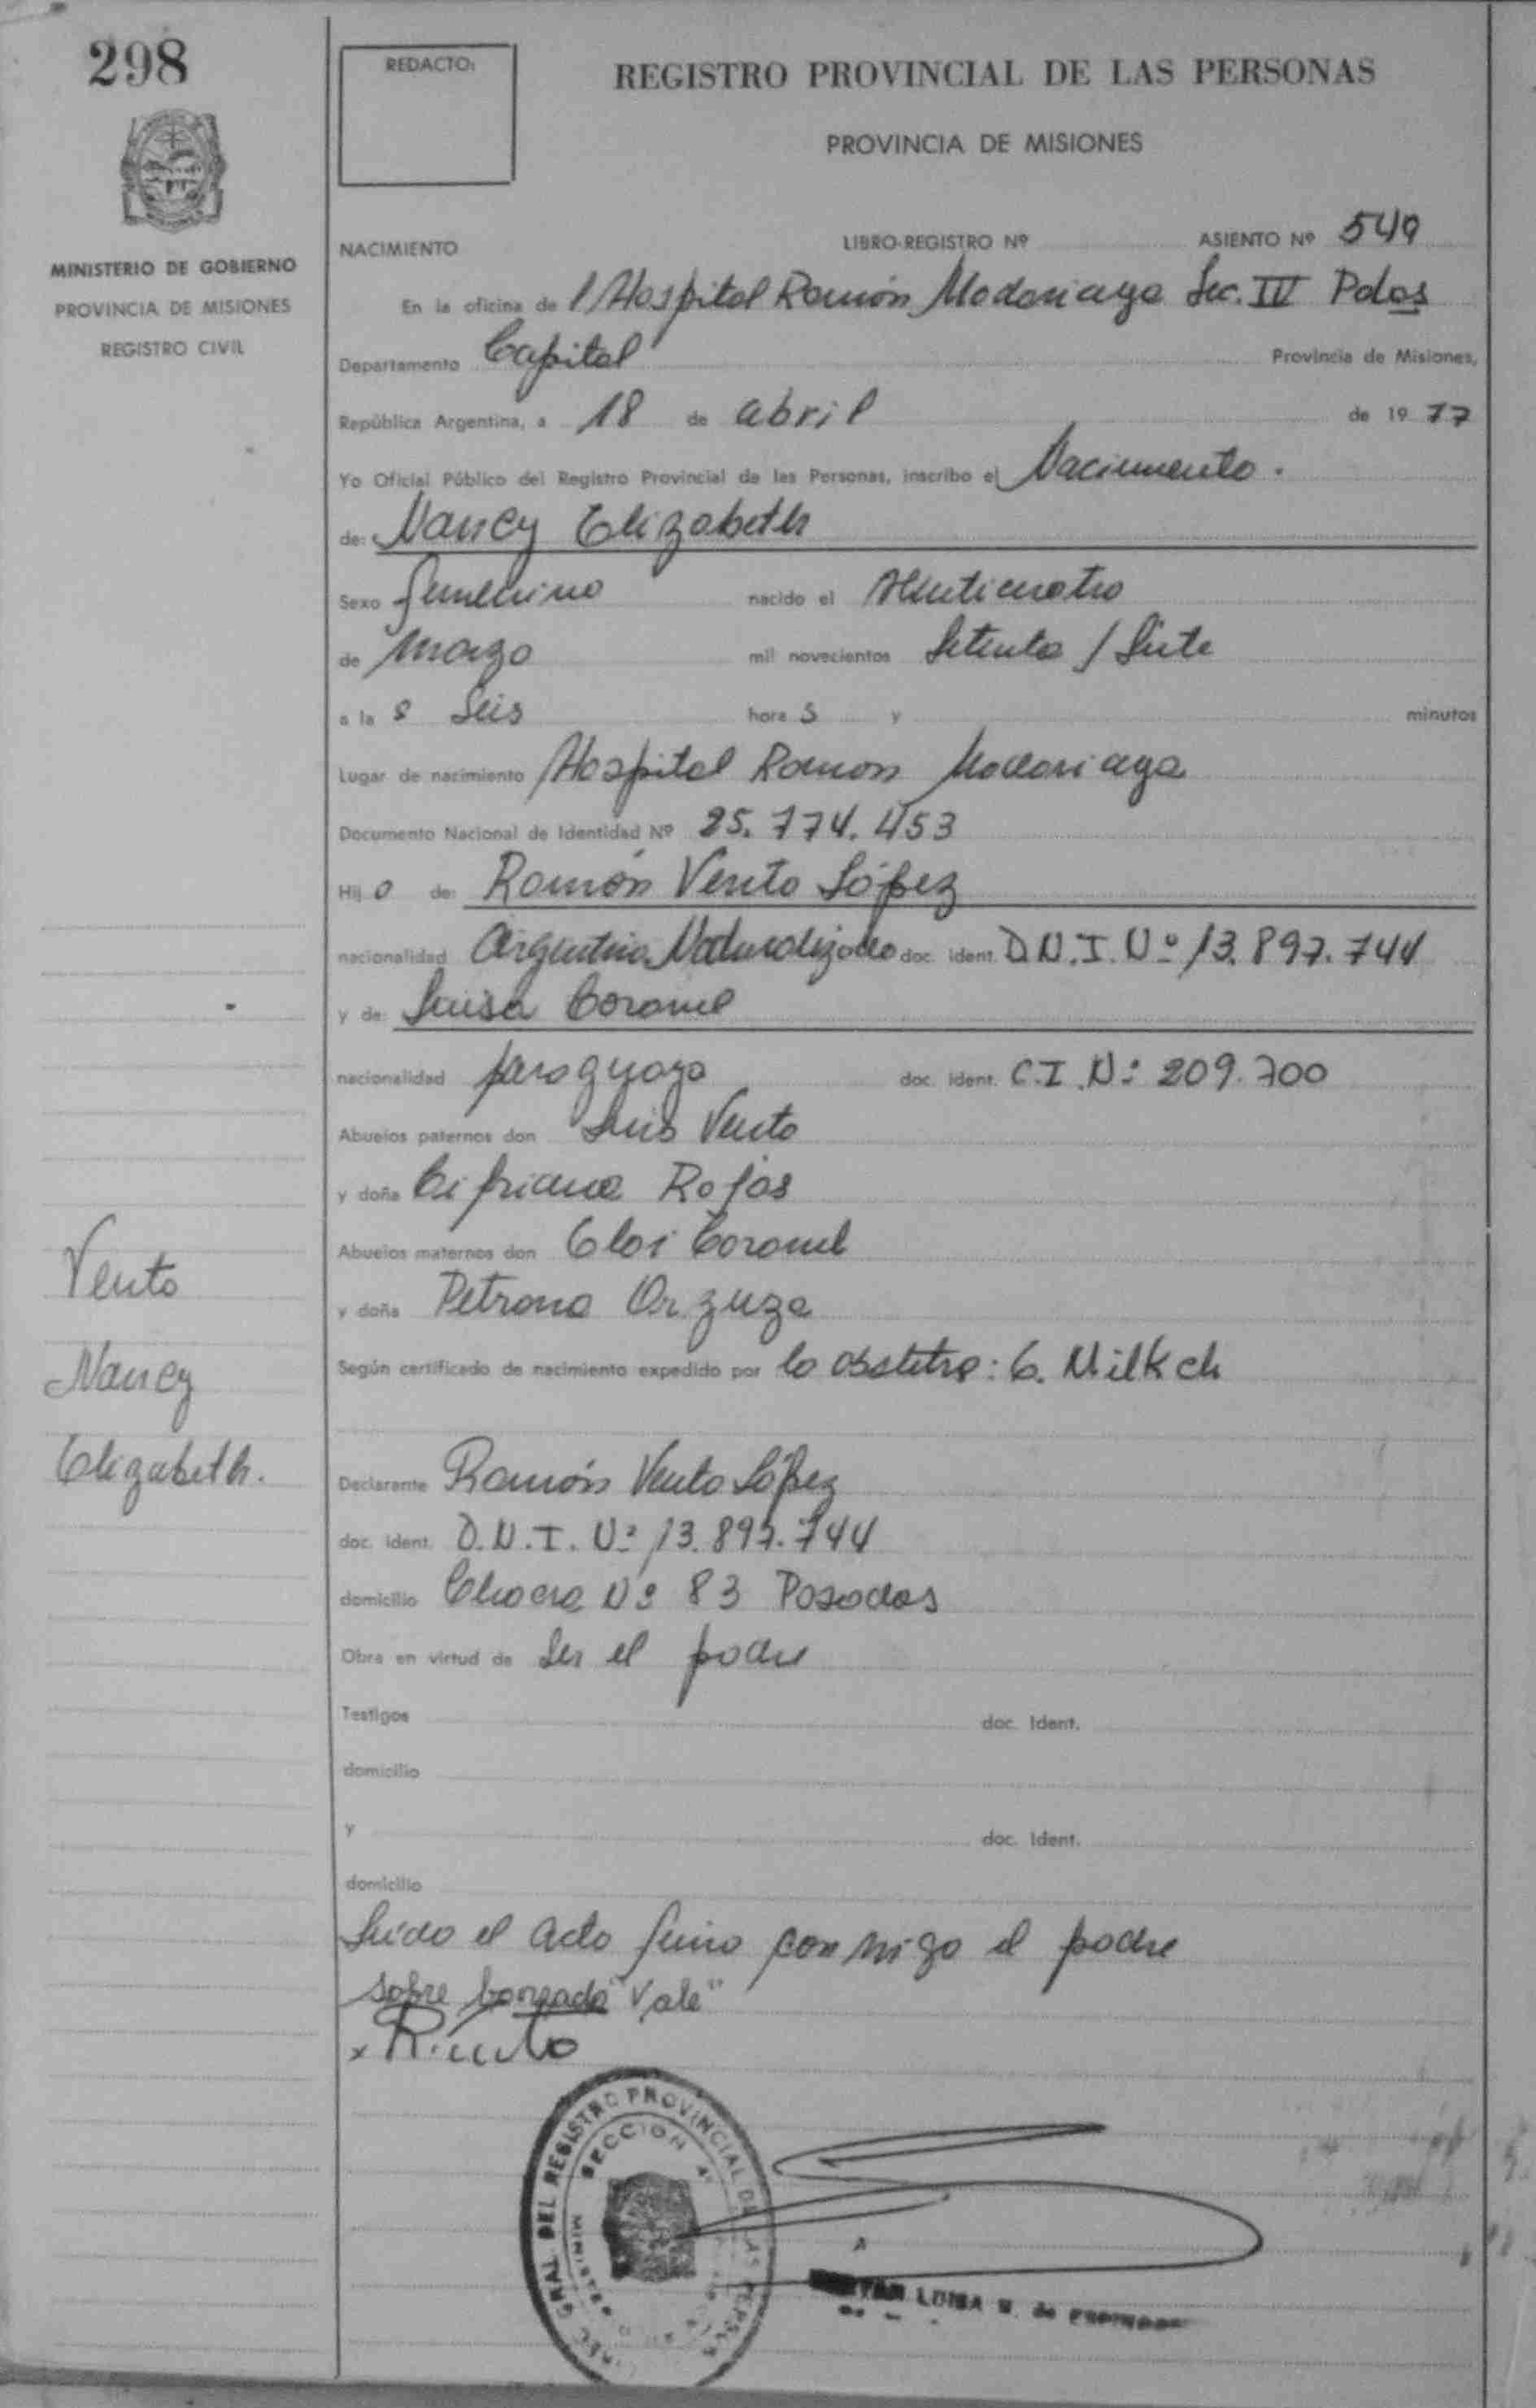 298
REDACTO:
REGISTRO PROVINCIAL DE LAS PERSONAS
PROVINCIA DE MISIONES
MINISTERIO DE GOBIERNO
PROVINCIA DE MISIONES
REGISTRO CIVIL
NACIMIENTO LIBRO-REGISTRO Nº ASIENTO Nº 549
En la oficina de l Hospital Ramón Madariaga Sec. IV Pdas
Departamento Capital Provincia de Misiones,
República Argentina, a 18 de abril de 1977
Yo Oficial Público del Registro Provincial de las Personas, inscribo el Nacimiento.
de: Nancy Elizabeth
Sexo femenino nacido el Veinticuatro
de Marzo mil novecientos Setenta / Siete
a la s Seis hora s y minutos
Lugar de nacimiento Hospital Ramon Madariaga
Documento Nacional de Identidad Nº 25.774.453
Hij o de: Ramón Vento López
nacionalidad Argentino Naturalizado doc. ident. D.N.I. Nº 13.897.744
y de: Luisa Coronel
nacionalidad paraguaya doc. ident. C.I. Nº 209.700
Abuelos paternos don Luis Vento
y doña Cipriana Rojas
Abuelos maternos don Eloi Coronel
y doña Petrona Orzuza
Según certificado de nacimiento expedido por la obstetra: G. Milkch
Vento
Nancy
Elizabeth.
Declarante Ramón Vento López
doc. ident. D.N.I. Nº 13.897.744
domicilio Chacra Nº 83 Posadas
Obra en virtud de Ser el padre
Testigos doc. Ident.
domicilio
y doc. Ident.
domicilio
Leido el acto firma conmigo el padre
sobre borrado "Vale"
x R. Vento
GRAL. DEL REGISTRO PROVINCIAL DE LAS PERSO
SECCION 4
LUISA